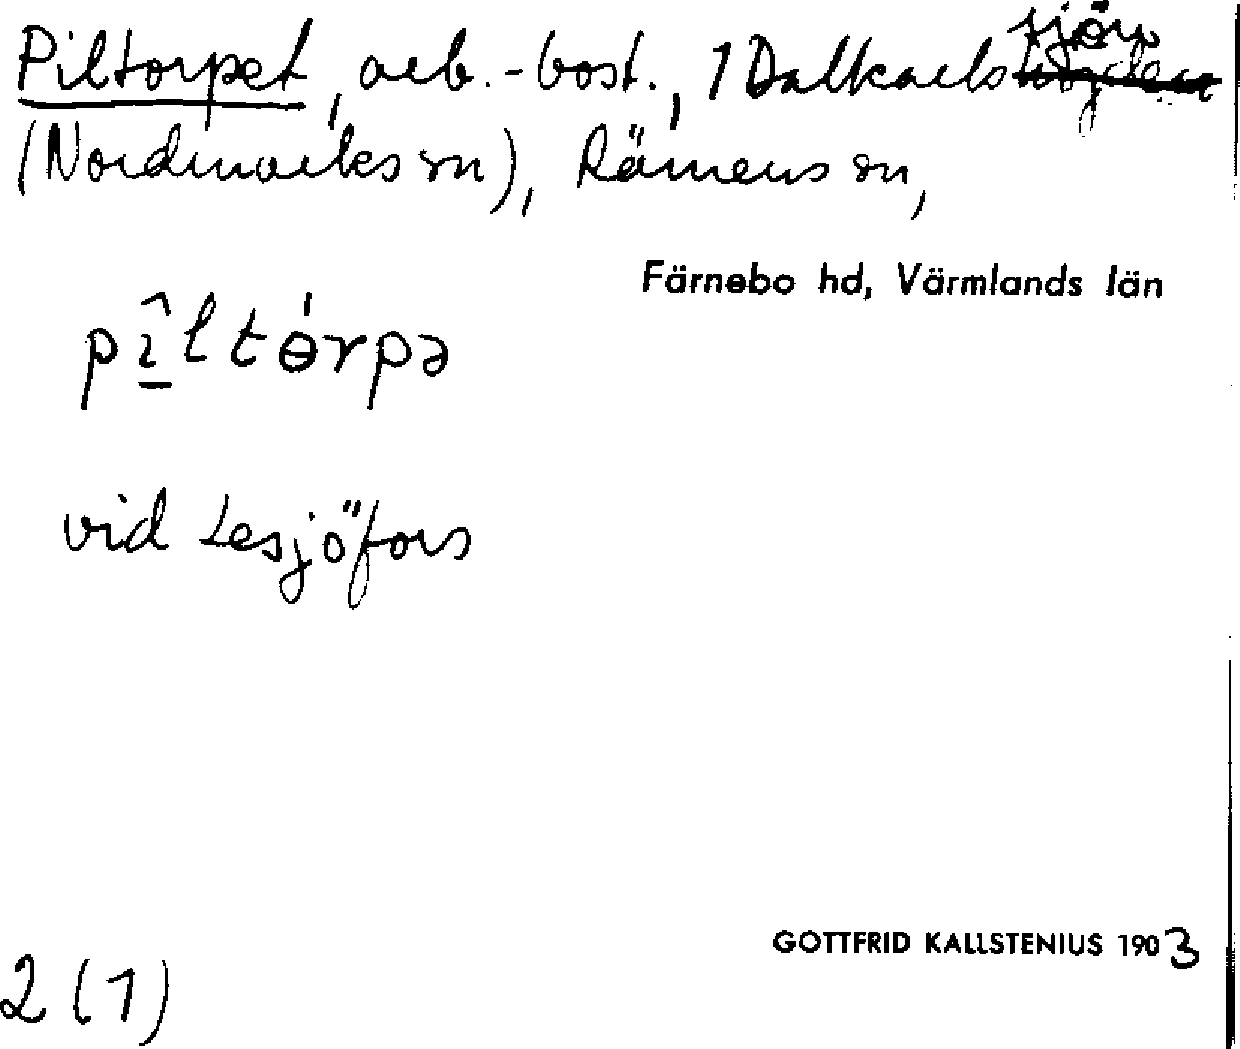 Piltorpet, arb.-bost., 1 Dalkarlssjön
(Nordmarks sn), Rämens sn,
Färnebo hd, Värmlands län
pî̲ltɵ́rpə
vid Lesjöfors
GOTTFRID KALLSTENIUS 1903
2 (1)